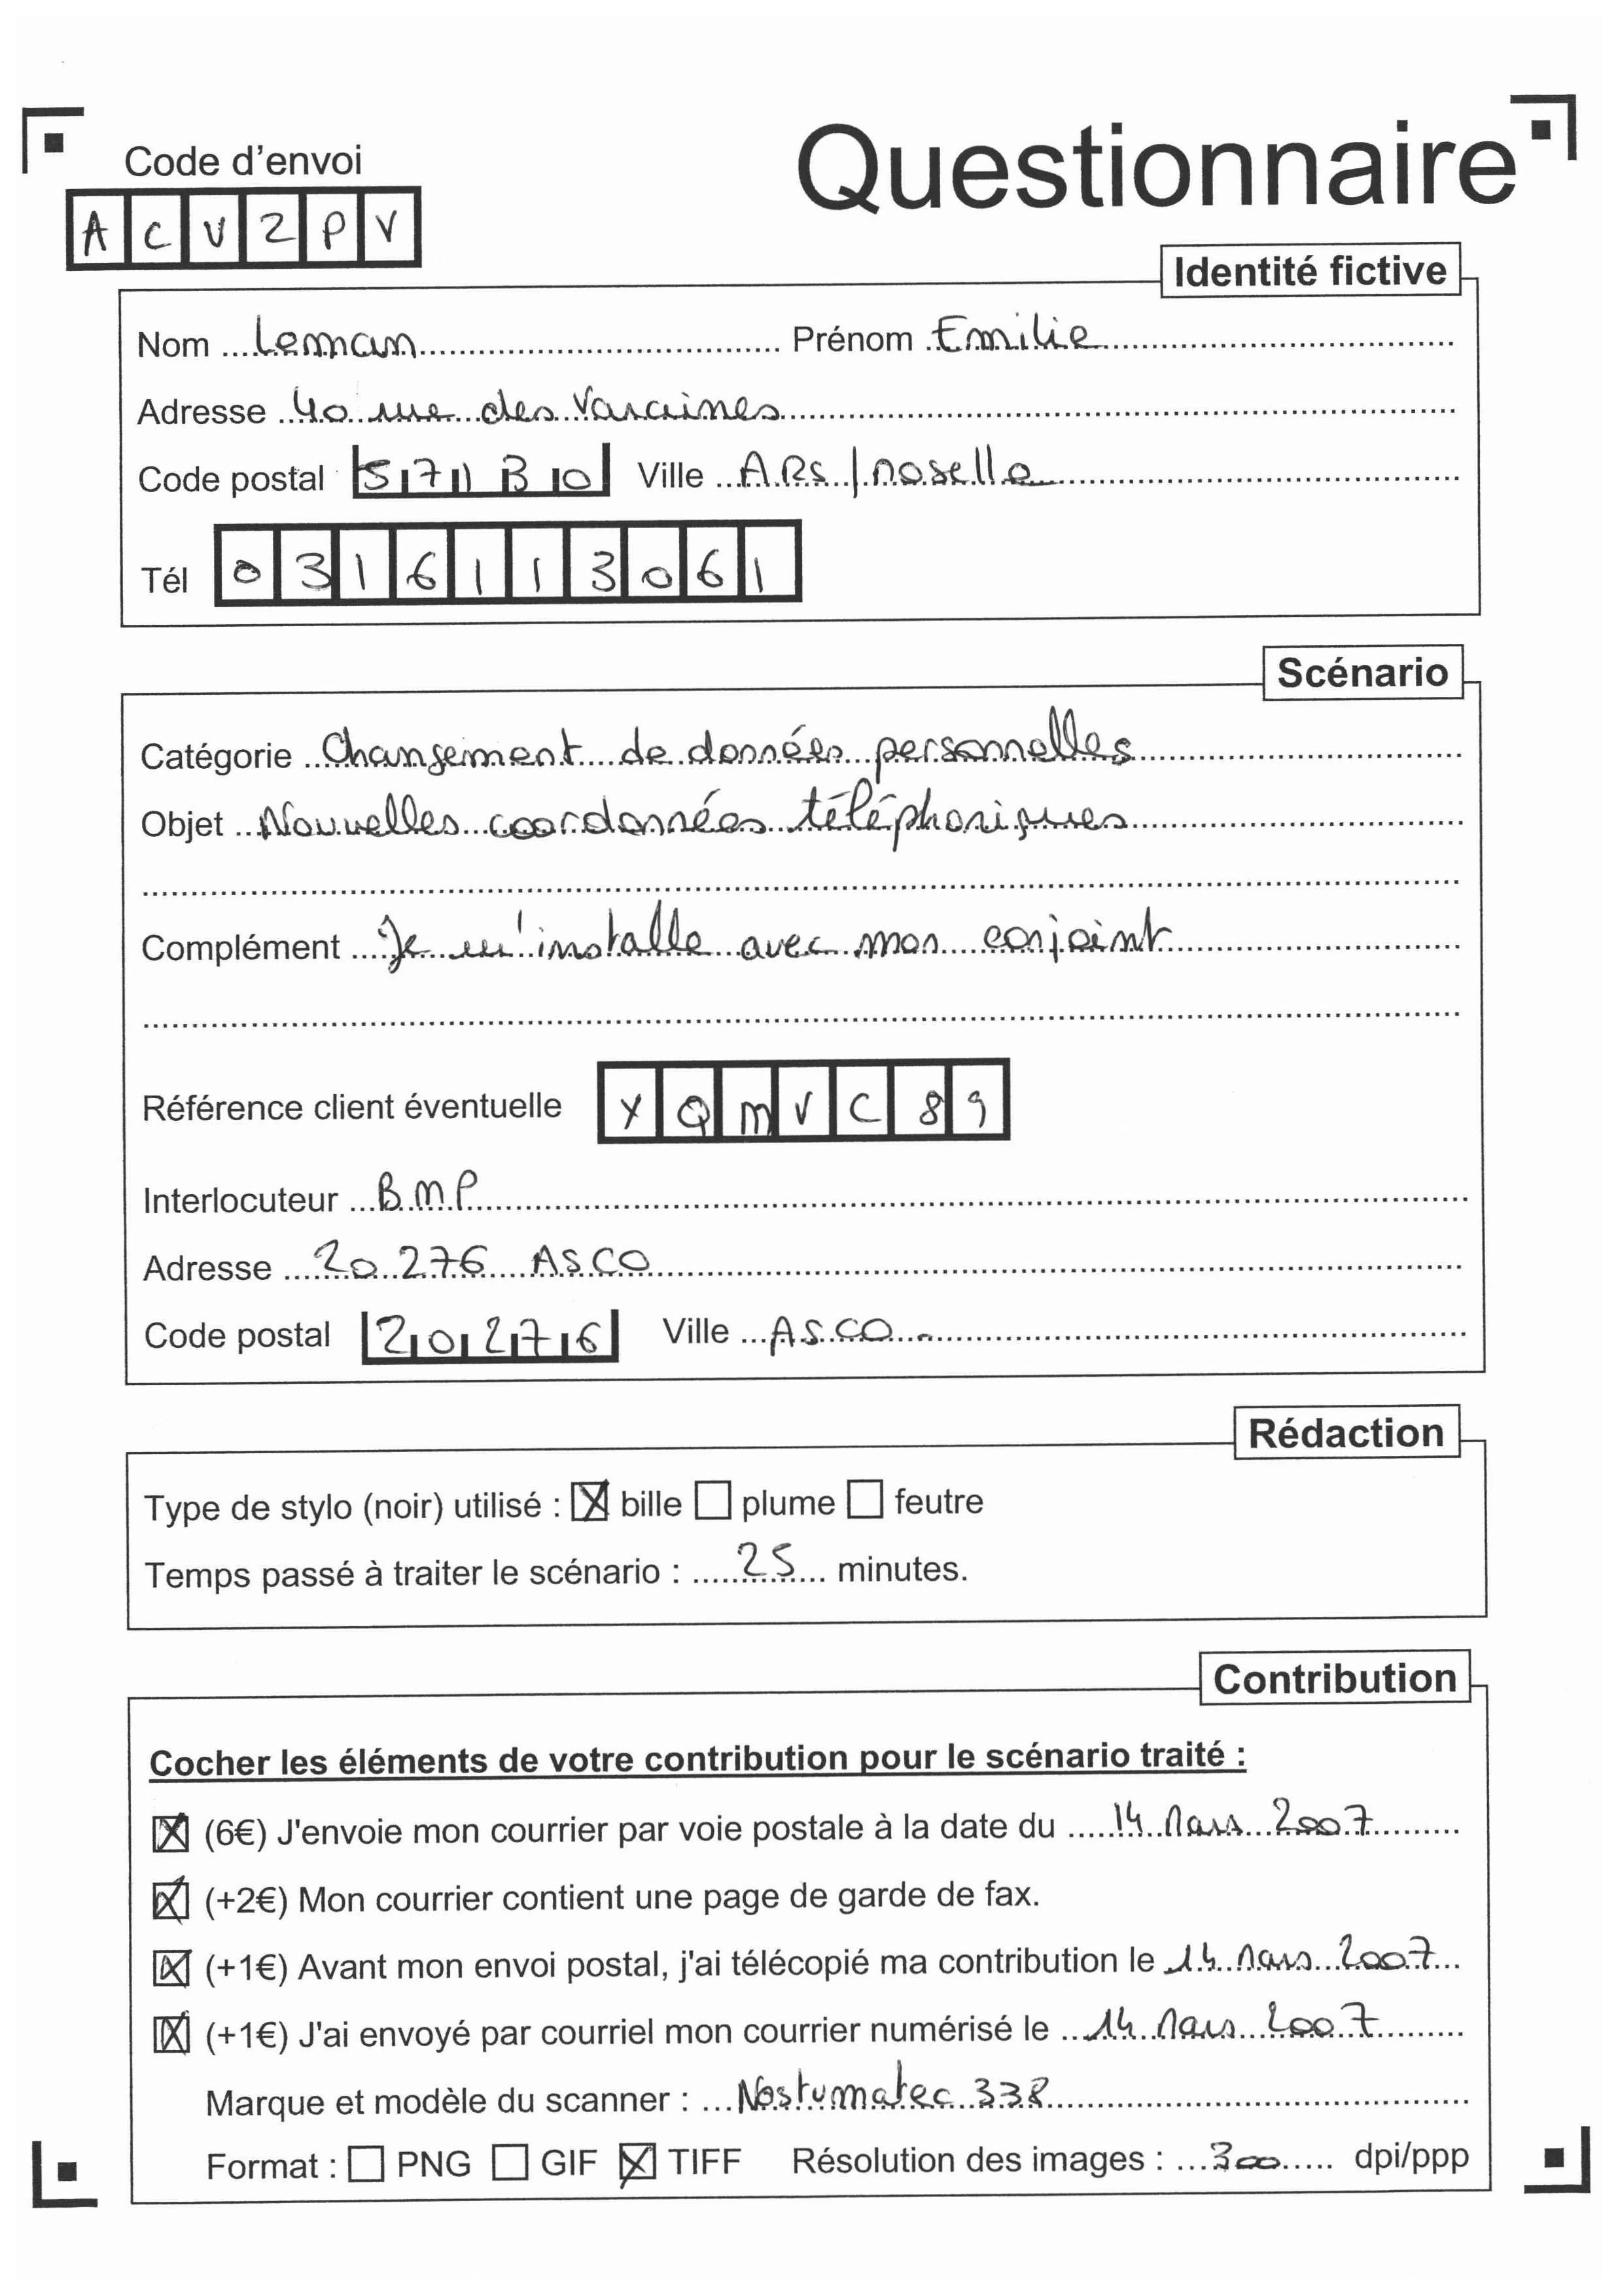 Questionnaire
Code d'envoi
A C V 2 P V
Identité fictive
Nom Leman Prénom Emilie
Adresse 40 rue des Varaines
Code postal 57130 Ville ARS/moselle
Tél 0316113061
Scénario
Catégorie Changement de données personnelles
Objet Nouvelles coordonnées téléphoniques
Complément Je m'installe avec mon conjoint
Référence client éventuelle X Q M V C 8 9
Interlocuteur BMP
Adresse 20 276 ASCO
Code postal 20276 Ville ASCO.
Rédaction
Type de stylo (noir) utilisé : ☒ bille ☐ plume ☐ feutre
Temps passé à traiter le scénario : 25 minutes.
Contribution
Cocher les éléments de votre contribution pour le scénario traité :
☒ (6€) J'envoie mon courrier par voie postale à la date du 14 Mars 2007
☒ (+2€) Mon courrier contient une page de garde de fax.
☒ (+1€) Avant mon envoi postal, j'ai télécopié ma contribution le 14 Mars 2007
☒ (+1€) J'ai envoyé par courriel mon courrier numérisé le 14 Mars 2007
Marque et modèle du scanner : Nostumatec 338
Format : ☐ PNG ☐ GIF ☒ TIFF Résolution des images : 300 dpi/ppp